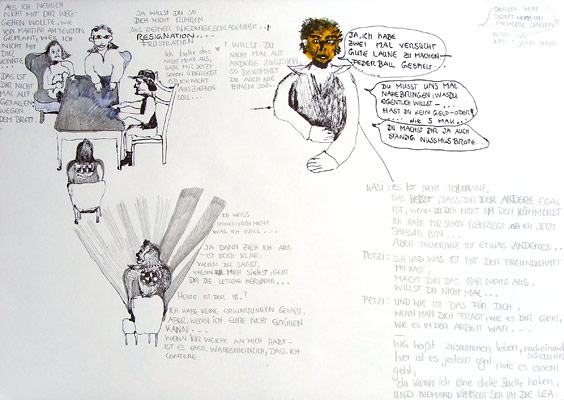 ALS ICH NEULICH
NICHT MIT DIR WEG-
GEHEN WOLLTE, WIE
VON MARTIN AM TELEFON
GEPLANT, WEIL ICH
NICHT
MIT
DIR
KONNTE
DAS IST
DIR NICHT
MAL AUF
GEFALLEN
WEGEN
DEM BRETT.
JA WILLST DU SO
DICH NICHT RÜHREN
AUS DEINER NIEDERGESCHLAGENHEIT..!
RESIGNATION...
FRUSTRATION
ICH
NICHT MEHR AUS,
HABE MIR JETZT
SCHON ÜBERLEGT
OB ICH NICHT
AUSZIEHEN
SOLL...
! WILLST DU
NICHT MAL AUF
ANDERE ZUGEHEN
SO BEKOMMST
DU AUCH NIE
EINEN JOB...
JA, ICH HABE
ZWEI MAL VERSUCHT
GUTE LAUNE ZU MACHEN
FEDERBALL GESPIELT...
DU MUSST UNS MAL
NAHEBRINGEN, WAS DU
EIGENTLICH WILLST -...
HAST DU KEIN GELD - ODER?
DIE 5 MARK...
DU MACHST DIR JA AUCH
STÄNDIG NUSSMUSBROTE...
ICH WEISS
IMMER NOCH NICHT
WAS ICH WILL...
JA DANN ZIEH ICH AUS
IST DOCH KLAR,
WENN DU SAGST,
WENN DU MICH SIEHST, GEHT
DIR DIE LEITUNG HERUNTER...
HEUTE IST DER 18.?
ICH HABE KEINE ERWARTUNGEN GEHABT,
ABER, WENN ICH EURE NICHT ERFÜLLEN
KANN...
WENN IHR WELCHE AN MICH HABT-
IST ES EHER WAHRSCHEINLICH, DASS ICH
KASI: ES IST NICHT TOLERANZ,
DAS HEISST, DASS DIR DER ANDERE EGAL
IST, WENN DU DICH NICHT UM DEN KÜMMERST
ICH HABE MIR SCHON ÜBERLEGT, OB ICH JETZT
BIN...
ABER TOLERANZ IST ETWAS ANDERES...
PETZI: JA UND WAS IST MIT DER FREUNDSCHAFT
MIT KASI,
MACHT DIR DAS GAR NICHTS AUS,
WILLST DU NICHT MAL...
PETZI: UND WIE IST DAS FÜR DICH,
WENN MAN DICH FRAGT, WIE ES DIR GEHT,
WIE ES IN DER ARBEIT WAR...
WG heißt zusammen leben, nacheinand
schauen
hier ist es jedem egal, wie es einem
geht,
da kann ich eine dicke Backe haben,
UND NIEMAND KÜMMERT SICH UM DIE LEA.